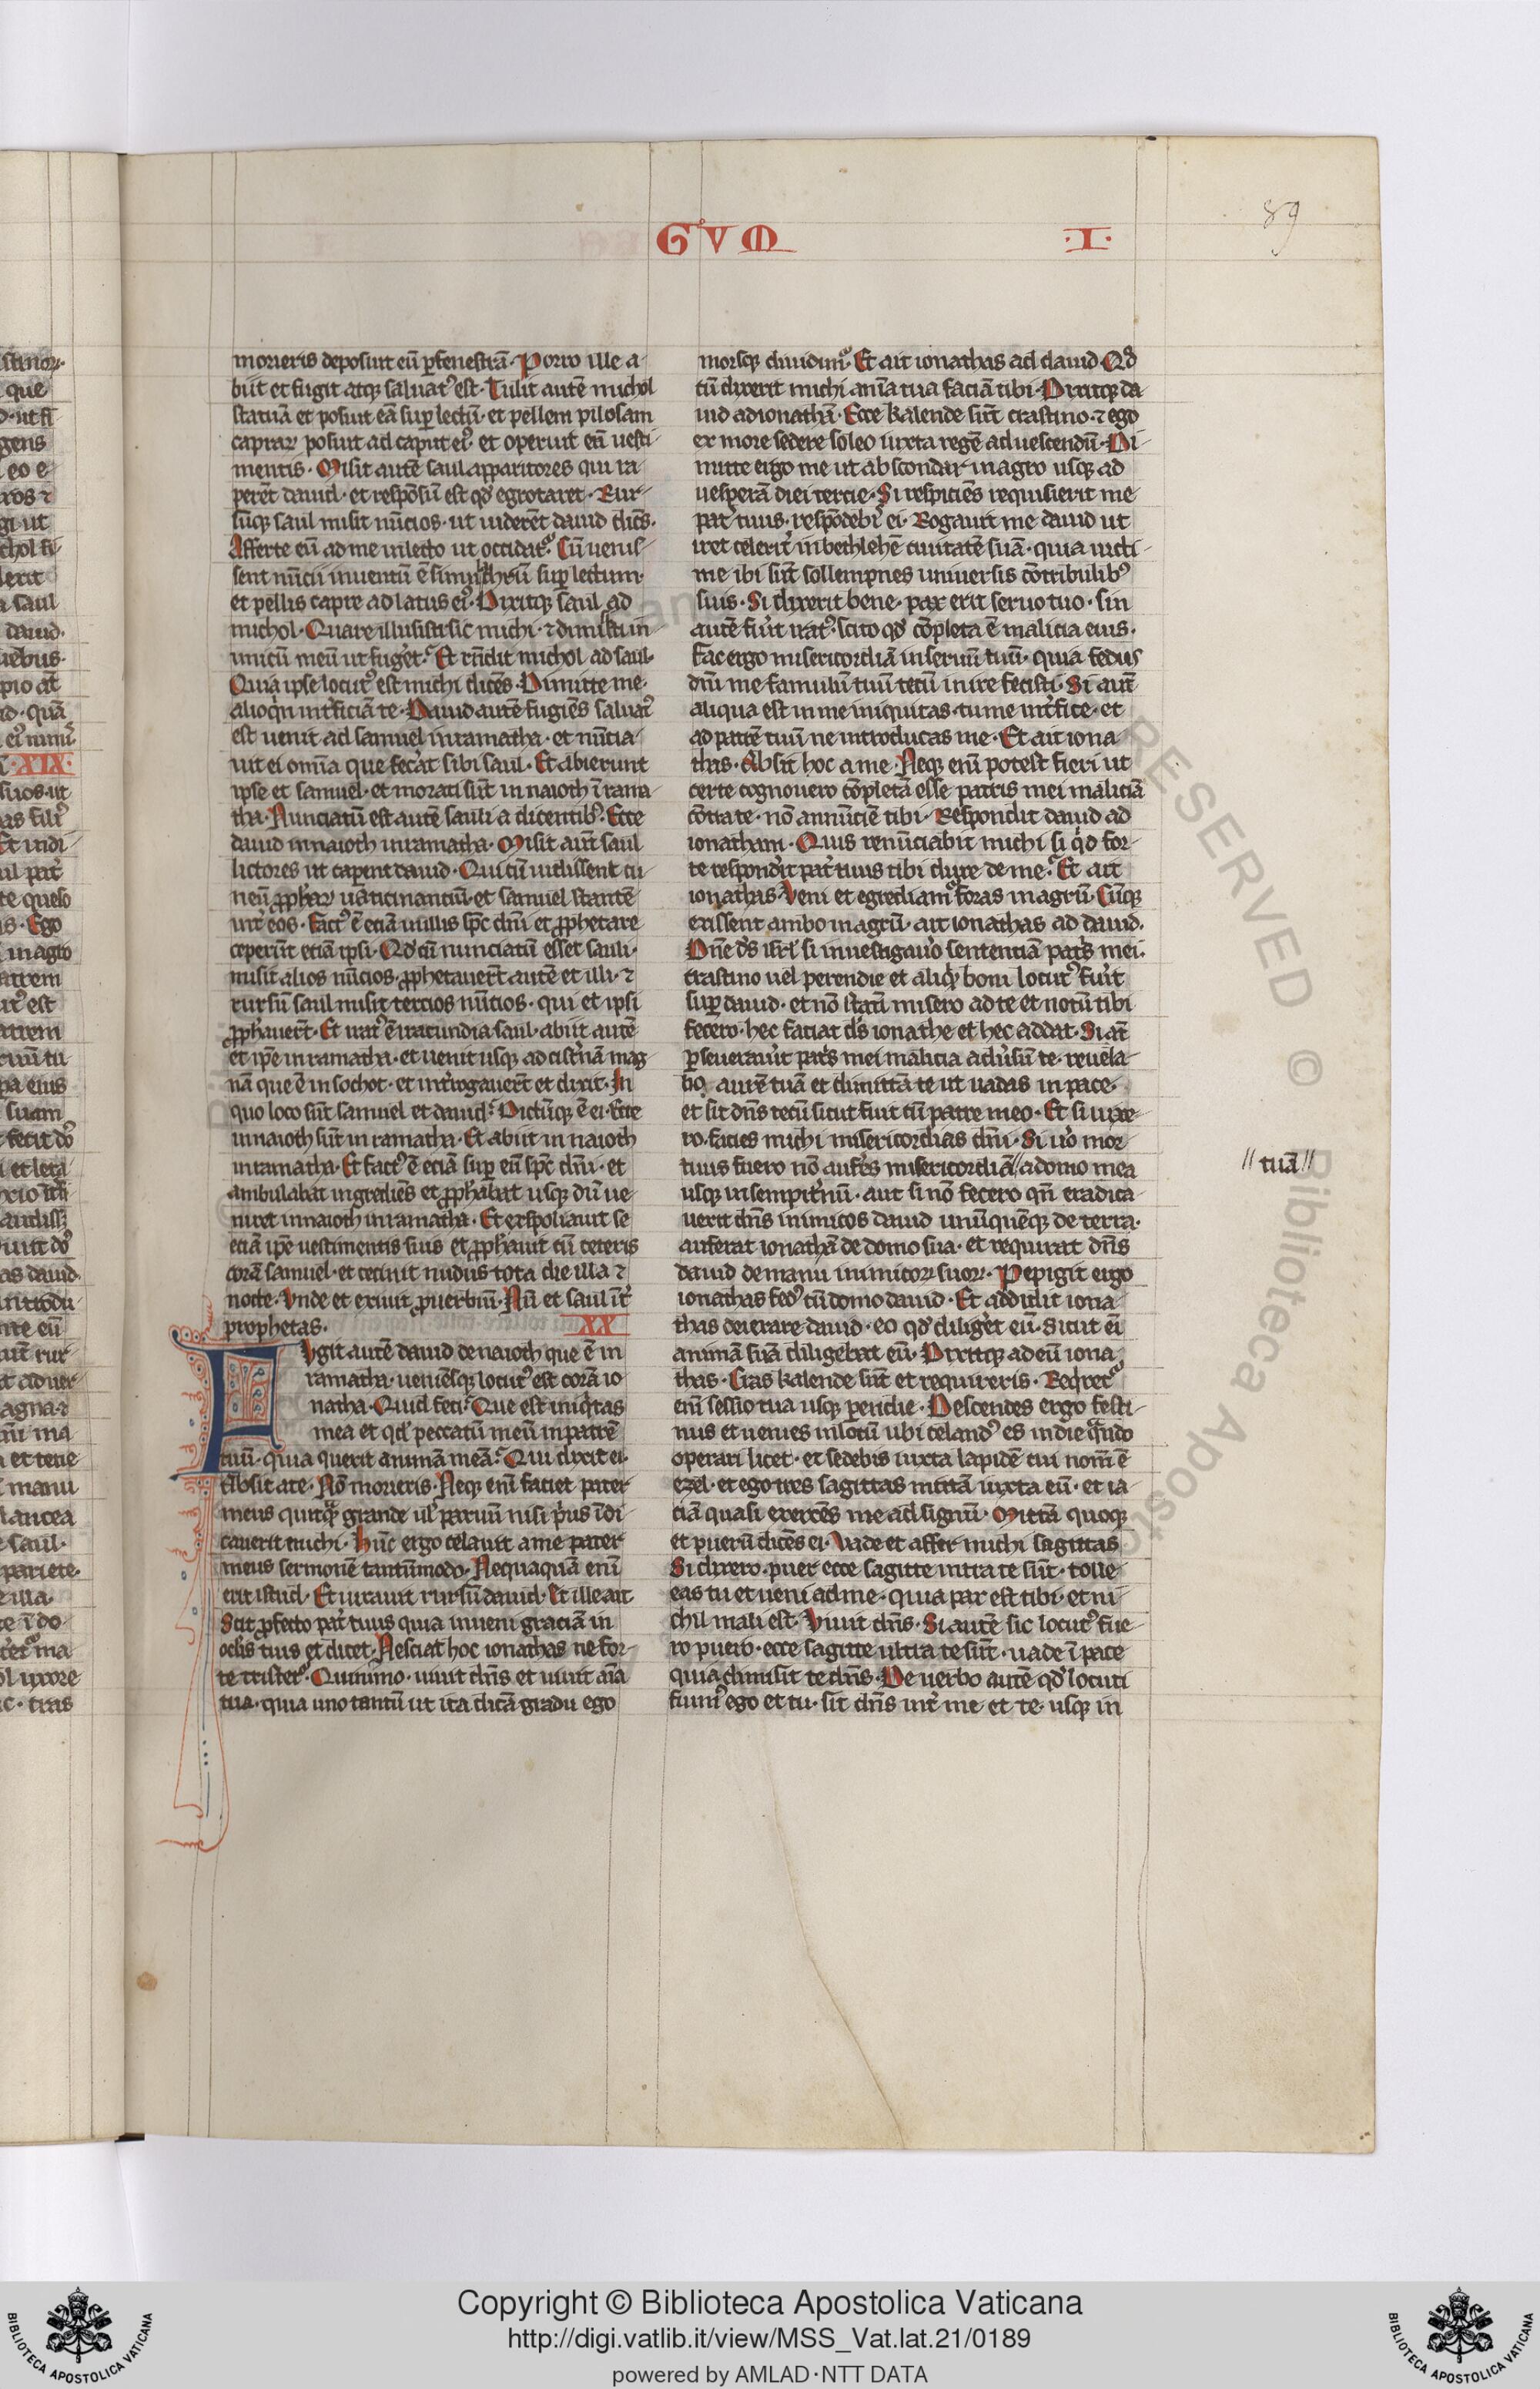 GVM
·I·
89
morieris deposuit eū ꝑ fenestrā· Porro ille a-
biit et fugit atqꝫ saluatꝰ est· Tulit autē michol
statuā et posuit eā suꝑ lectū· et pellem pilosam
caprarꝝ posuit ad caput eiꝰ· et operuit eā uesti-
mentis· Misit autē saul apparitores qui ra-
perēt dauid· et respōsū est qđ egrotaret· Rur-
sūqꝫ saul misit nūcios· ut uiderēt dauid dicēs·
Afferte eū ad me in lecto ut occidatᷣ· Cū uenis-
sent nūcii inuentū ē simulachrū suꝑ lectum·
et pellis capre ad latus eiꝰ· Dixitqꝫ saul ad
michol· Quare illusisti sic michi· ⁊ dimisisti in-
imicū meū ut fugeret· Et rn̄dit michol ad saul·
Quia ipse locutꝰ est michi dicēs· Dimitte me·
alioqͥn intͥficiā te· Dauid autē fugiēs saluatꝰ
est uenit ad samuel in ramatha· et nūtia-
uit ei om̄ia que fecͥat sibi saul· Et abierunt
ipse et samuel· et morati sūt in naioth ī rama-
tha· Nunciatū est autē sauli a dicentibꝰ· Ecce
dauid in naioth in ramatha· Misit aut̄ saul
lictores ut caperent dauid· Qui cū uidissent cu-
neū ꝓphetarꝝ uaticinantiū· et samuel stantē
intͥ eos· Factꝰ ē eciā in illis sp̄c dn̄i et ꝓphetare
ceperūt etiā ipsi· Qđ cū nunciatū esset sauli·
misit alios nūcios· ꝓphetauerūt autē et illi· ⁊
rursū saul misit tercios nūcios· qui et ipsi
ꝓph̄auerūt· Et iratꝰ ē iracundia saul· abiit autē
et ip̄e in ramatha· et uenit usqꝫ ad cistͥnā mag-
nā que ē in sochot· et intͥrogauerūt et dixit· In
quo loco sūt samuel et dauid· Dictūqꝫ ē ei· Ecce
in naioth sūt in ramatha· Et abiit in naioth
in ramatha· Et factꝰ ē eciā suꝑ eū sp̄c dn̄i· et
ambulabat ingrediēs et ꝓph̄abat usqꝫ dū ue-
niret in naioth in ramatha· Et exspoliauit se
eciā ip̄e uestimentis suis et ꝓph̄auit cū ceteris
corā samuel· et cecinit nudus tota die illa ⁊
nocte· Vnde et exiuit ꝓuerbiū· Nū et saul īt̄
prophetas·
XX
Fugit autē dauid de naioth que ē in
ramatha· ueniēsqꝫ locutꝰ est corā io-
natha· Quid feci· Que est iniqͥtas
mea et qđ peccatū meū in patrē
tuū· quia querit animā meā· Qui dixit ei·
Absit a te· Nō morieris· Neqꝫ eni faciet pater
meus quicqͣ grande ul' paruū nisi pͥus īdi-
cauerit michi· Hūc ergo celauit a me pater
meus sermonē tantūmodo· Nequaquā enī
erit istud· Et iurauit rursū dauid· Et ille ait
Scit ꝓfecto patͥ tuus quia inueni graciā in
ocl̓is tuis et dicet· Nesciat hoc ionathas ne for-
te tristetᷣ· Quinimo· uiuit dn̄s et uiuit aīa
tua· quia uno tantū ut ita dicā gradu ego
morsqꝫ diuidimᷣ· Et ait ionathas ad dauid· Qđ
cū dixerit michi anīa tua faciā tibi· Dixitqꝫ da-
uid ad ionathā· Ecce kalende sūt crastino· ⁊ ego
ex more sedere soleo iuxta regē ad uescendū· Di-
mitte ergo me ut abscondar in agro usqꝫ ad
uesperā diei tercie· Si respiciēs requisierit me
patͥ tuus· respōdebͥ ei· Rogauit me dauid ut
iret celeritͥ in bethlehē ciuitatē suā· quia uicti-
me ibi sūt sollempnes uniuersis cōtribulibꝰ
suis· Si dixerit bene· pax erit seruo tuo· sin
autē fuͥit iratꝰ· scito qđ cōpleta ē malicia eius·
Fac ergo misericordiā in seruū tuū· quia fedus
dn̄i me famulū tuū tecū inire fecisti· Si aut̄
aliqua est in me iniquitas· tu me intͥfice· et
ad patrē tuū ne introducas me· Et ait iona-
thas· Absit hoc a me· Neqꝫ enī potest fieri ut
certe cognouero cōpletā esse patris mei maliciā
cōtra te· nō annūciē tibi· Respondit dauid ad
ionatham· Quis renūciabit michi si qͥd for-
te respondͥit patͥ tuus tibi dure de me· Et ait
ionathas· Veni et egrediamᷣ foras in agrū· Cūqꝫ
exissent ambo in agrū· ait ionathas ad dauid·
Dn̄e ds̄ isrl̄ si inuestigauͥo sententiā patͥs mei·
crastino uel perendie et aliqͥd boni locutꝰ fuͥit
suꝑ dauid· et nō statī misero ad te et notū tibi
fecero· hec faciat ds̄ ionathe et hec addat· Si at̄
ꝑseuerauͥit patͥs mei malicia aduͥsū te· reuela-
bo aurē tuā et dimittā te ut uadas in pace·
et sit dn̄s tecū sicut fuit cū patre meo· Et si uixe-
ro· facies michi misericordias dn̄i· Si uͦo mor-
tuus fuero nō aufeͥs misericordiā // a domo mea
// tuā //
usqꝫ in sempitͥnū· aut si nō fecero qn̄ eradica-
uerit dn̄s inimicos dauid unūquēqꝫ de terra·
auferat ionathā de domo sua· et requirat dn̄s
dauid de manu inimicorꝝ suorꝝ· Pepigit ergo
ionathas fedꝰ cū domo dauid· Et addidit iona-
thas deierare dauid· eo qđ diligeͥt eū· Sicut ei
animā suā diligebat eū· Dixitqꝫ ad eū iona-
thas· Cras kalende sūt et requireris· Reqͥretᷣ
enī sessio tua usqꝫ perēdie· Descendes ergo festi-
nus et uenies in locū ubi celandꝰ es in die qͣndo
operari licet· et sedebis iuxta lapidē cui nom̄ ē
ezel· et ego tres sagittas mittā iuxta eū· et ia-
ciā quasi exercēs me ad signū· Mittā quoqꝫ
et puerū dicēs ei· Vade et affer michi sagittas
Si dixero· puer ecce sagitte intra te sūt· tolle
eas tu et ueni ad me· quia pax est tibi· et ni-
chil mali est· Viuit dn̄s· Si autē sic locutꝰ fue-
ro puero· ecce sagitte ultra te sūt· uade ī pace
quia dimisit te dn̄s· De uerbo autē qđ locuti
fuimꝰ ego et tu· sit dn̄s intͥ me et te· usqꝫ in
Copyright © Biblioteca Apostolica Vaticana
http://digi.vatlib.it/view/MSS_Vat.lat.21/0189
powered by AMLAD·NTT DATA
BIBLIOTECA APOSTOLICA VATICANA
BIBLIOTECA APOSTOLICA VATICANA